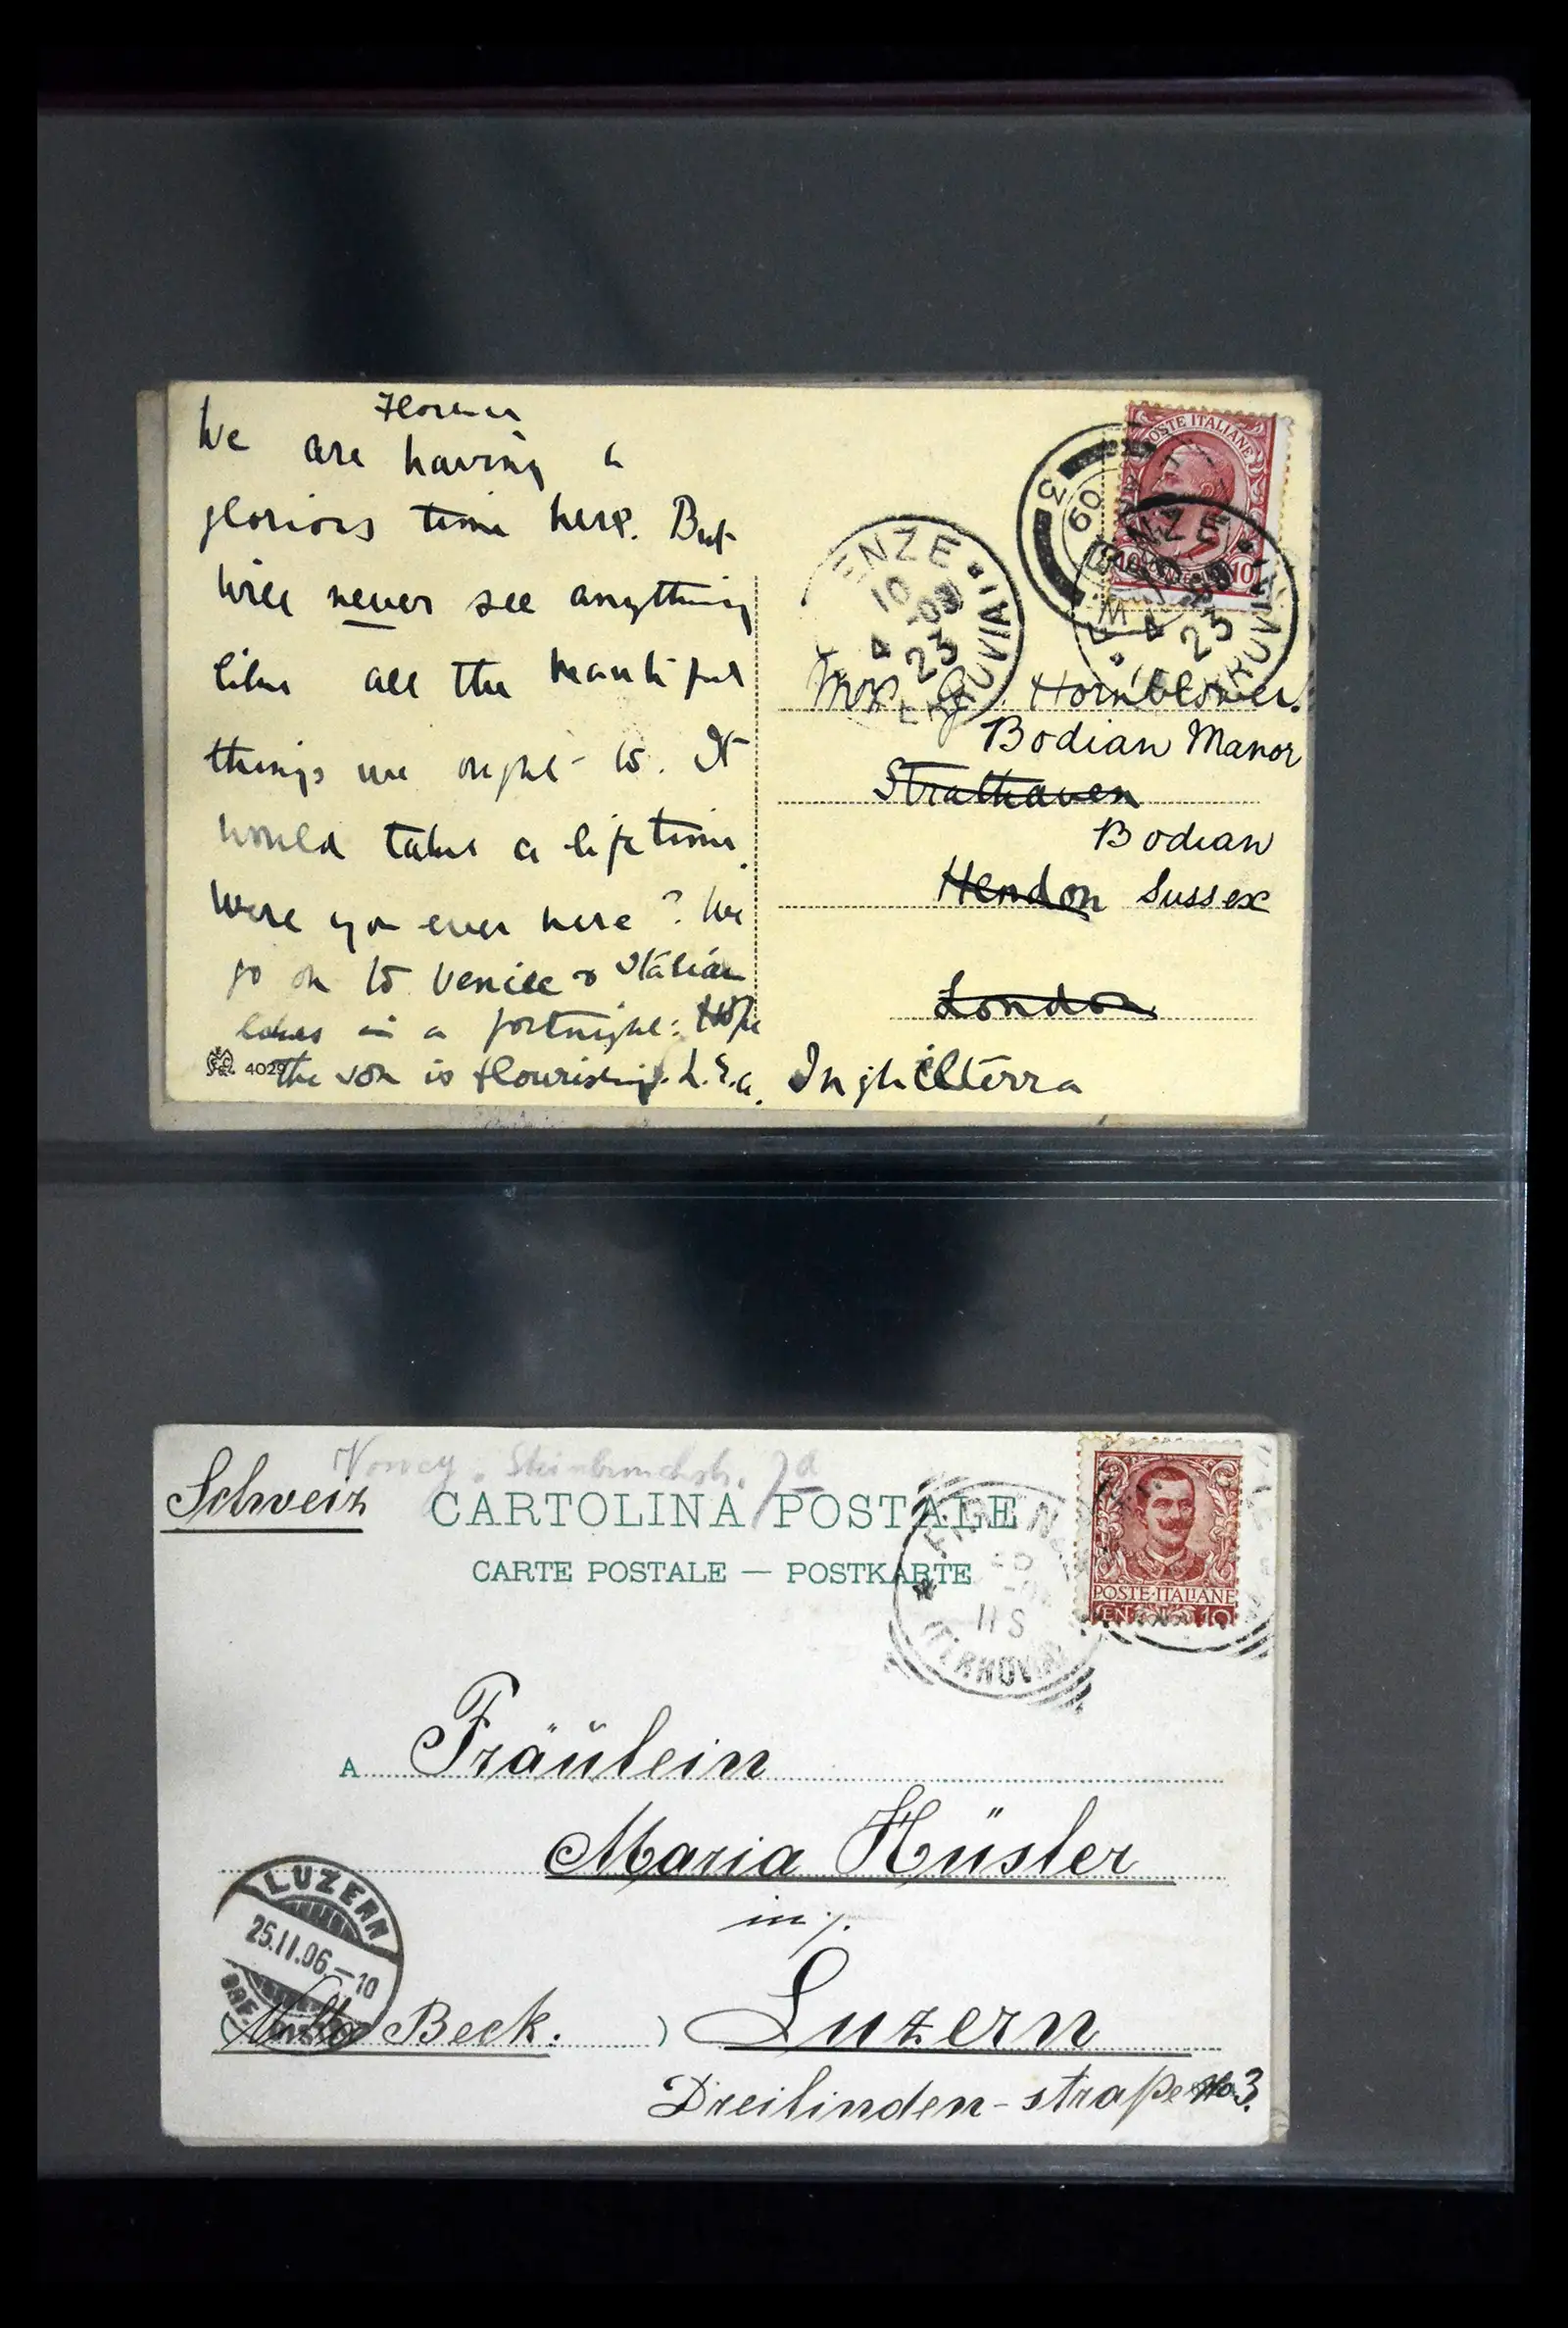 Florence
We are having a
glorious time here. But
will never see anything
like all the beautiful
things we ought to. It
would take a lifetime.
Were you ever here? We
go on to Venice & Italian
lakes in a fortnight: Hope
the son is flourishing. L.E.a.
4029
POSTE ITALIANE
10 10
3
09
ENZE
10
4 09
23
FERROVIA
ENZE
4
23
FERROVIA
Hornblower.
Bodian Manor
Strathaven
Bodian
Hendon Sussex
London
Inghilterra
Schweiz
CARTOLINA POSTALE
CARTE POSTALE — POSTKARTE
POSTE·ITALIANE
CENT. 10
11 S
(FERROVIA)
A Fräulein
Maria Hüsler
in/.
LUZERN
25.II.06.—10
BRF.
Beck. ) Luzern
Dreilinden-straße No 3.